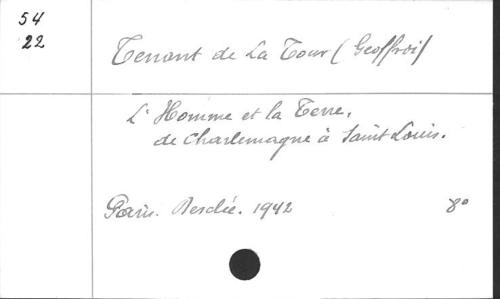 54
22
Tenant de La Tour (Geoffroi)
L'Homme et la Terre,
de Charlemagne à Saint Louis.
Paris. Desclée. 1942 8º